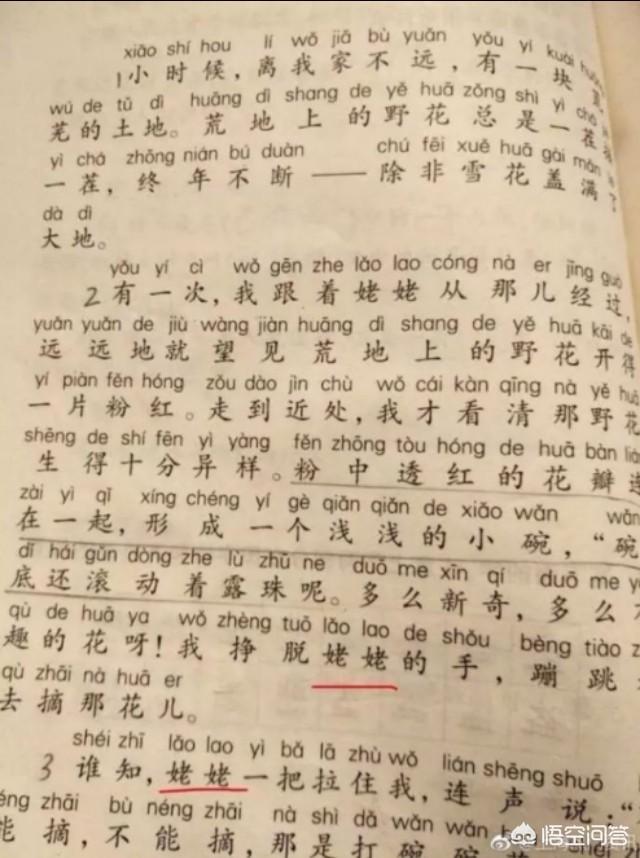 xiǎo shí hou lí wǒ jiā bù yuǎn yǒu yí kuài
1小时候，离我家不远，有一块
wú de tǔ dì huāng dì shang de yě huā zǒng shì yì chá
芜的土地。荒地上的野花总是一茬
yì chá zhōng nián bú duàn chú fēi xuě huā gài mǎn
一茬，终年不断——除非雪花盖满了
dà dì
大地。
yǒu yí cì wǒ gēn zhe lǎo lao cóng nà er jīng guò
2有一次，我跟着姥姥从那儿经过，
yuǎn yuǎn de jiù wàng jiàn huāng dì shang de yě huā kāi de
远远地就望见荒地上的野花开得
yí piàn fěn hóng zǒu dào jìn chù wǒ cái kàn qīng nà yě huā
一片粉红。走到近处，我才看清那野花
shēng de shí fēn yì yàng fěn zhōng tòu hóng de huā bàn lián
生得十分异样。粉中透红的花瓣连
zài yì qǐ xíng chéng yí gè qiǎn qiǎn de xiǎo wǎn wǎn
在一起，形成一个浅浅的小碗，“碗
dǐ hái gǔn dòng zhe lù zhū ne duō me xīn qí duō me
底还滚动着露珠呢。多么新奇，多么
qù de huā ya wǒ zhèng tuō lǎo lao de shǒu bèng tiào
趣的花呀！我挣脱姥姥的手，蹦跳
qù zhāi nà huā er
去摘那花儿。
shéi zhī lǎo lao yì bǎ lā zhù wǒ lián shēng shuō
3谁知，姥姥一把拉住我，连声说：“
néng zhāi bù néng zhāi nà shì dǎ wǎn wǎn
能摘，不能摘，那是打碗碗
悟空问答